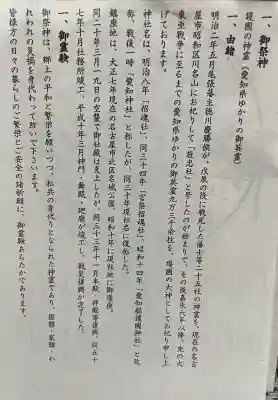 一、御祭神
護国の神霊(愛知県ゆかりの御英霊)
一、由緒
明治二年五月尾張藩主徳川慶勝候が、戊辰の役に戦死した藩士等二十五柱の神霊を、現在の名古
屋市昭和区川名山にお祀りして「旌忠社」と号したのが始まりで、その後嘉永六年以降、先の大
東亜戦争に至るまでの愛知県ゆかりの御英霊九万三千余柱を、護国の大神としてお祀り申し上
げております。
神社名は、明治八年「招魂社」、同三十四年「官祭招魂社」、昭和十四年「愛知縣護國神社」と改
称、戦後一時「愛知神社」と称したが、同三十年現社名に復帰した。
鎮座地は、大正七年現在の名古屋市北区名城公園、昭和十年に現社地に御遷座。
同二十年三月十九日の空襲で御社殿は炎上したが、同三十三年十一月本殿・拝殿等復興、同五十
七年十月社務所竣工、平成十年三月神門、舞殿、廻廊が竣工し、戦災復興が完了した。
一、御霊験
御祭神は、郷土の平和と繁栄を願いつつ、私共の身代りとなられた神霊であり、国難・家難・わ
れわれの災禍を身代わって防いで下さいます。
皆様方の日々の暮らしのご繁栄とご安全の諸祈願に、御霊験あらたかであります。